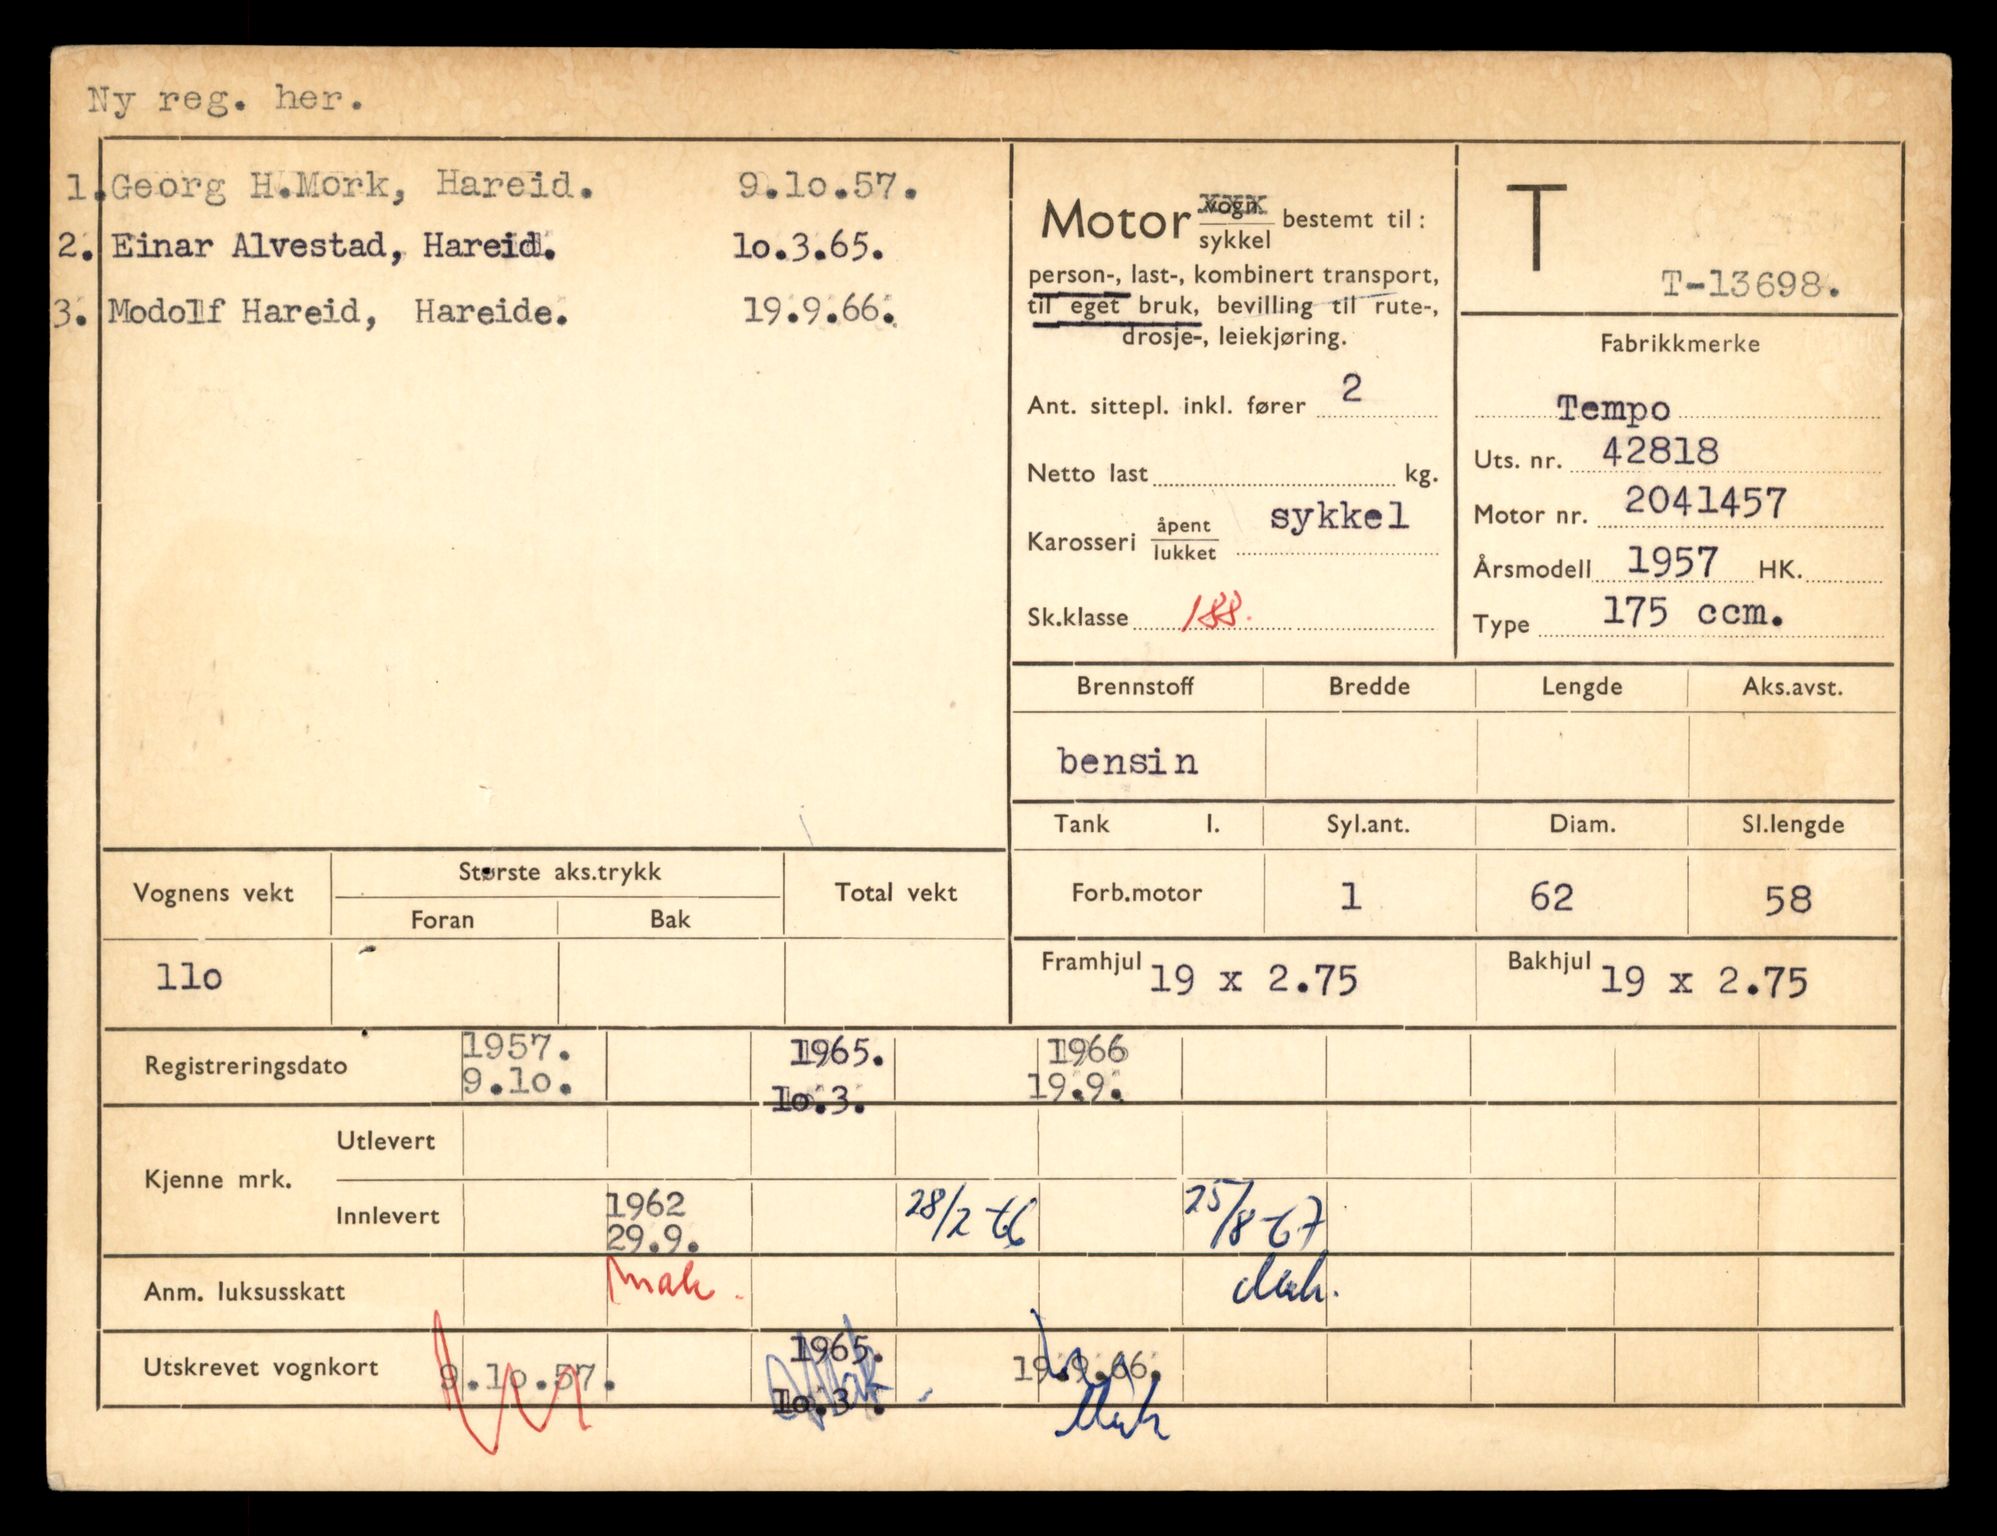 Ny reg. her.
1. Georg H.Mork, Hareid. 9.lo.57.
2. Einar Alvestad, Hareid. lo.3.65.
3. Modolf Hareid, Hareide. 19.9.66.
Motor vogn/sykkel bestemt til:
person-, last-, kombinert transport,
til eget bruk, bevilling til rute-,
drosje-, leiekjøring.
Ant. sittepl. inkl. fører 2
Netto last kg.
Karosseri åpent/lukket sykkel
Sk.klasse 188.
T
T-13698.
Fabrikkmerke
Tempo
Uts. nr. 42818
Motor nr. 2041457
Årsmodell 1957 HK.
Type 175 ccm.
Brennstoff Bredde Lengde Aks.avst.
bensin
Tank l. Syl.ant. Diam. Sl.lengde
Forb.motor 1 62 58
Framhjul 19 x 2.75 Bakhjul 19 x 2.75
Vognens vekt Største aks.trykk Total vekt
Foran Bak
llo
Registreringsdato 1957. 1965. 1966
9.lo. lo.3. 19.9.
Kjenne mrk.
Utlevert
Innlevert 1962 28/2-66 25/8-67
29.9.
Anm. luksusskatt
Utskrevet vognkort 9.lo.57. 1965. 19.9.66.
lo.3.